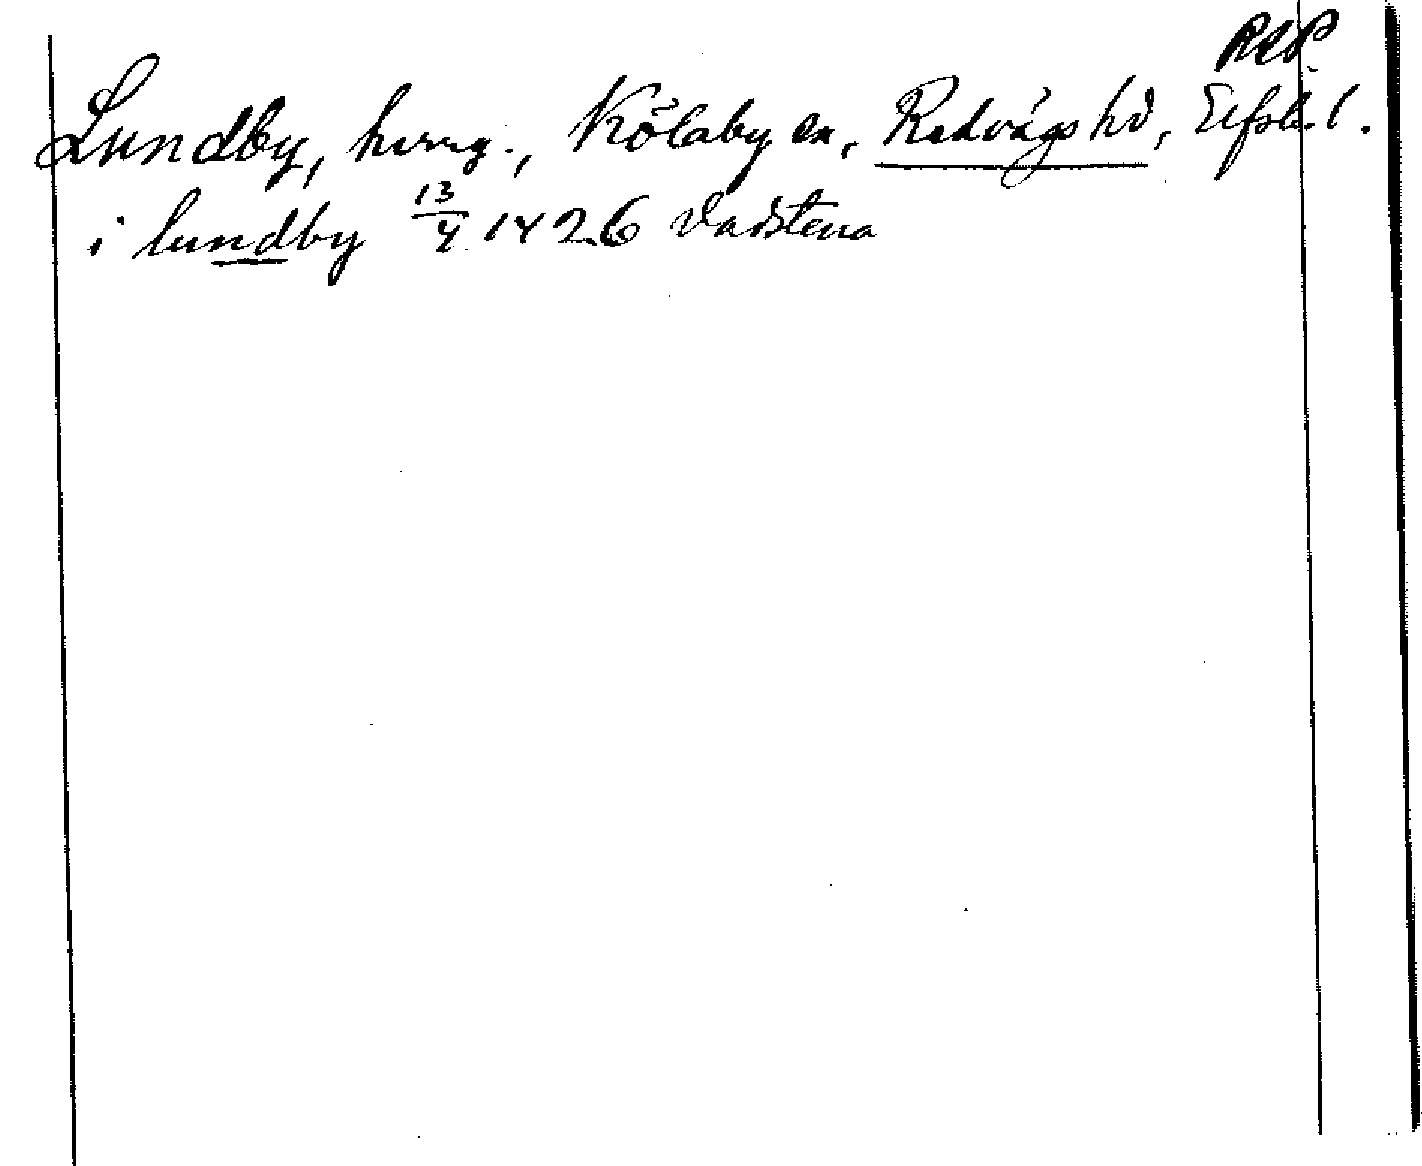 RAP.
Lundby, herrg., Kölaby sn, Redvägs hd, Elfsb. l.
i lundby 13/4 1426 Vadstena